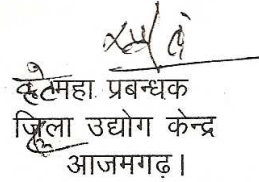 कृते महा प्रबन्धक
जिला उद्योग केन्द्र
आजमगढ़।